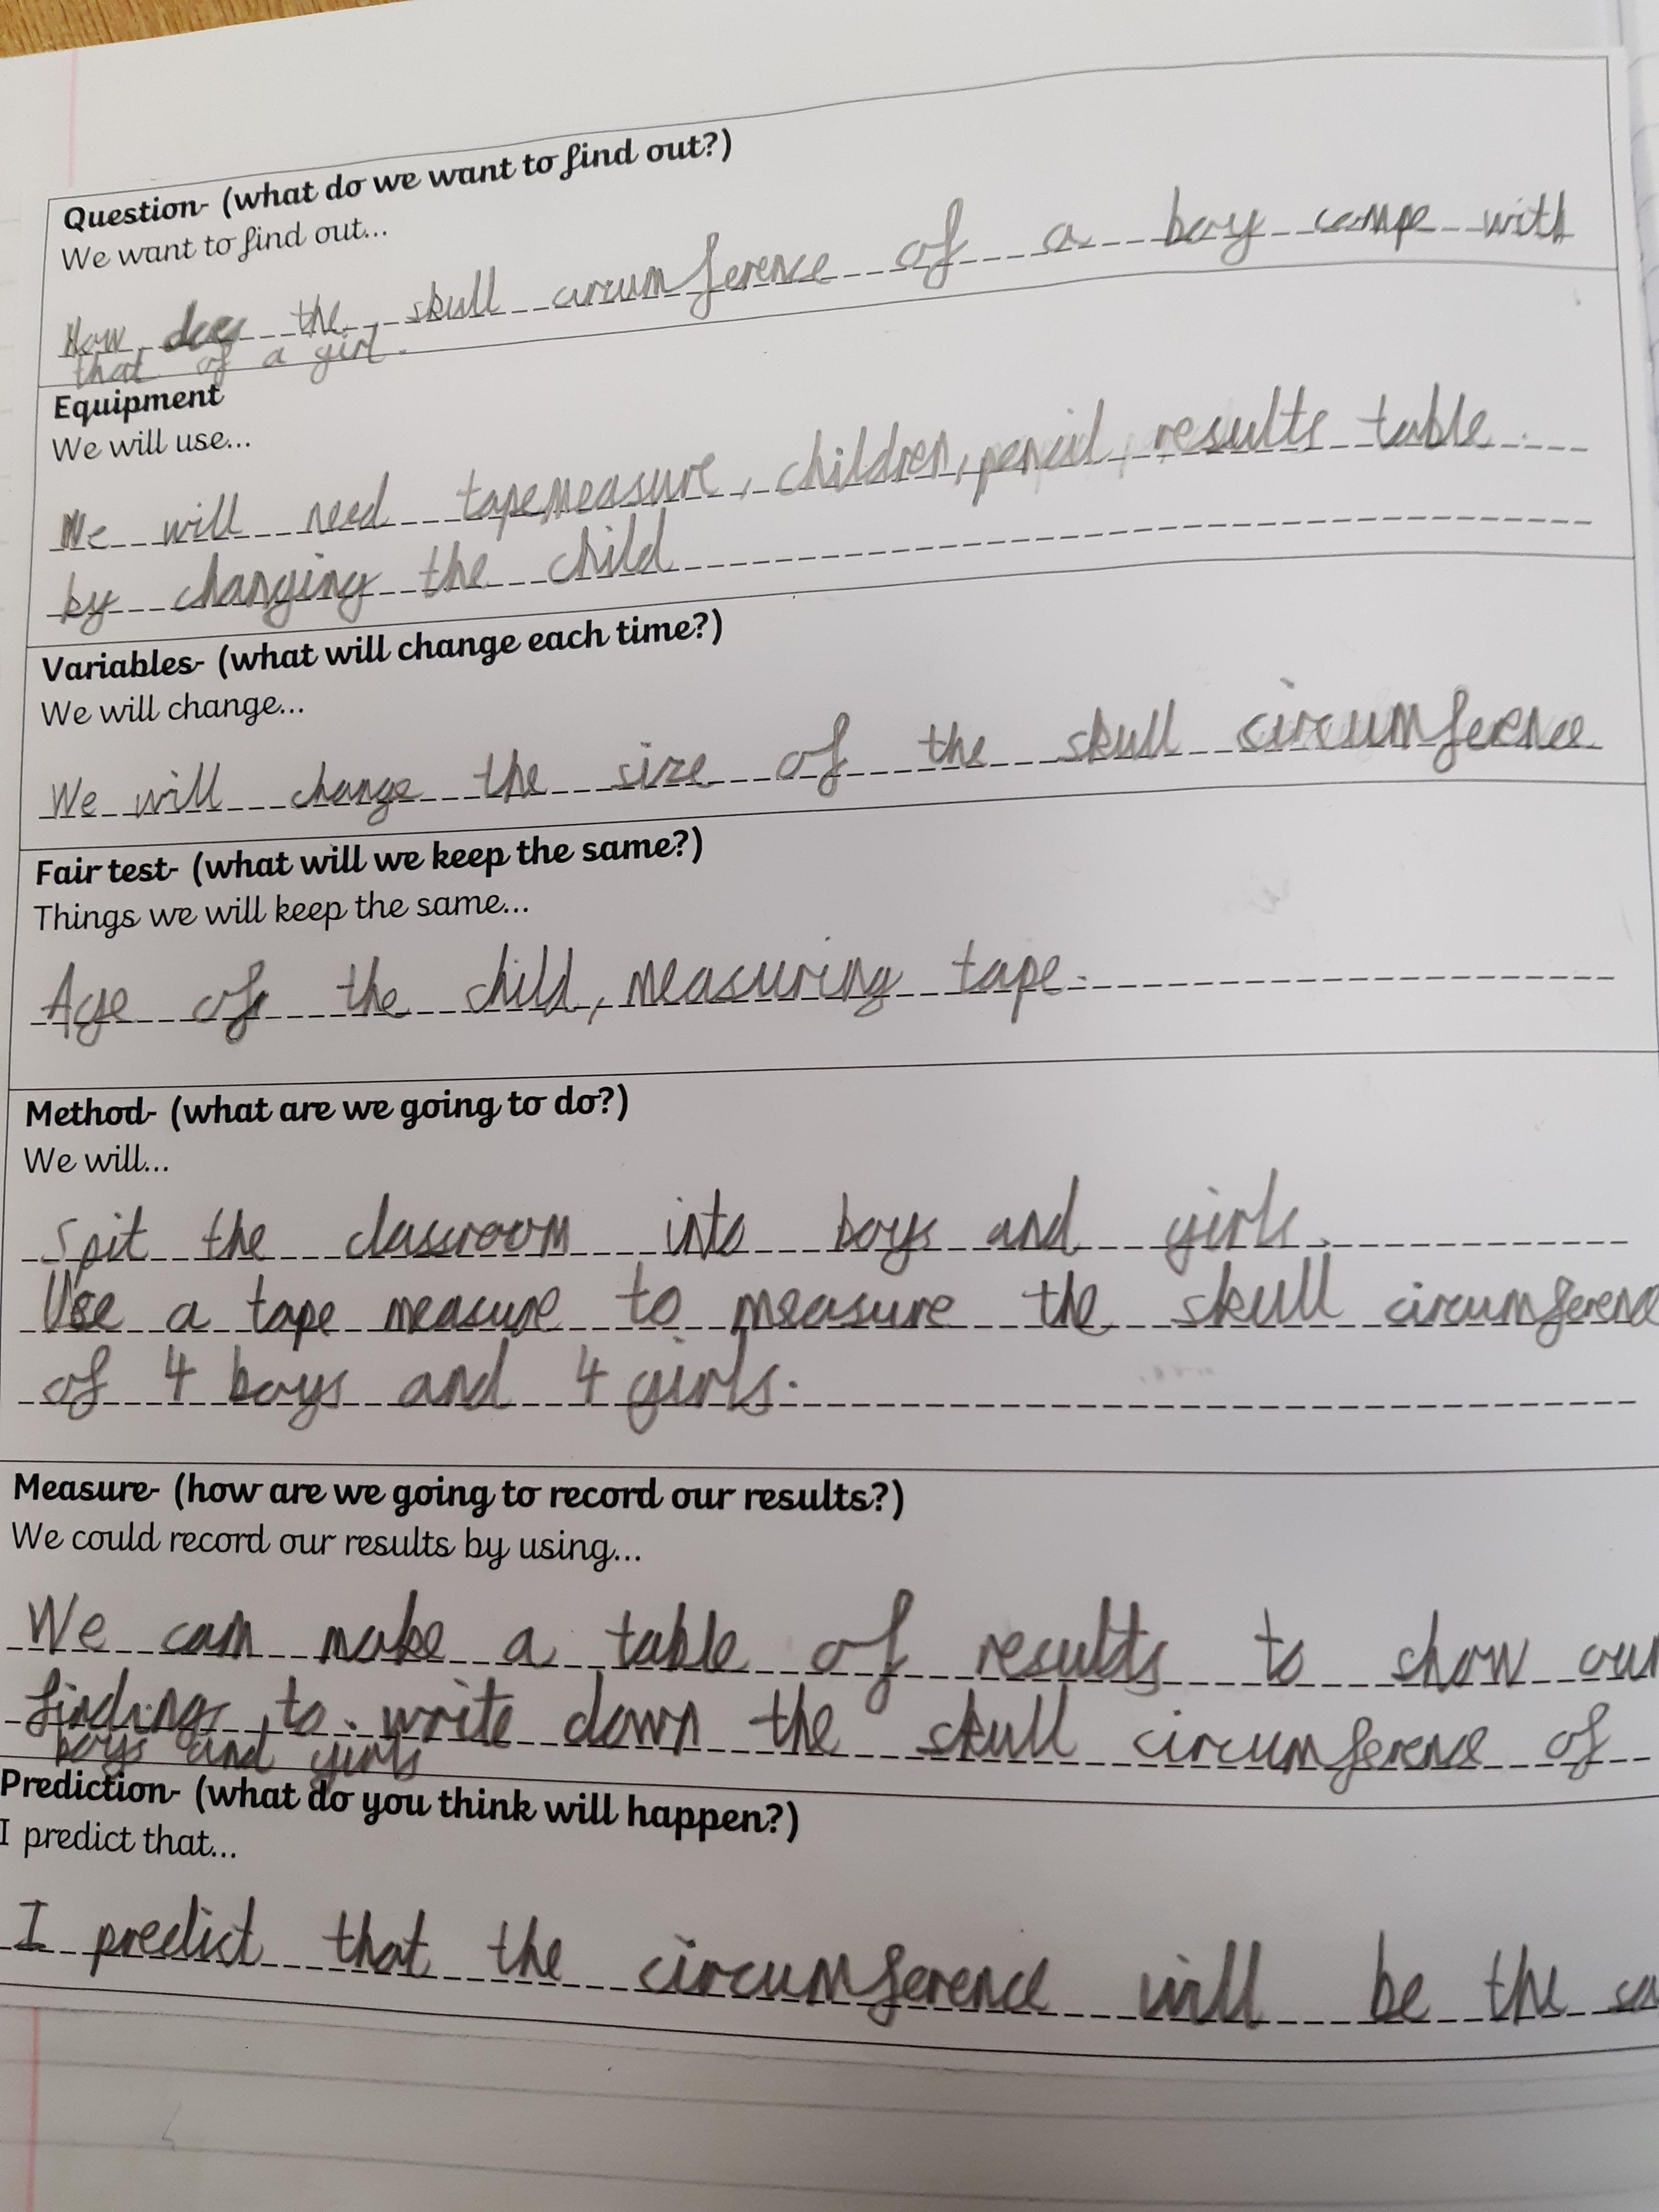 Question- (what do we want to find out?)
We want to find out...
How does the skull circumference of a boy compe with
that of a girl.
Equipment
We will use...
We will need tapemeasure, children, pencil, results table
by changing the child
Variables- (what will change each time?)
We will change...
We will change the size of the skull circumference
Fair test- (what will we keep the same?)
Things we will keep the same...
Age of the child, measuring tape.
Method- (what are we going to do?)
We will...
Spit the classroom into boys and girls.
Use a tape measure to measure the skull circumferenc
of 4 boys and 4 girls.
Measure- (how are we going to record our results?)
We could record our results by using...
We can make a table of results to show our
findings to. write down the skull circumference of
boys and girls
Prediction- (what do you think will happen?)
I predict that...
I predict that the circumference will be the sa